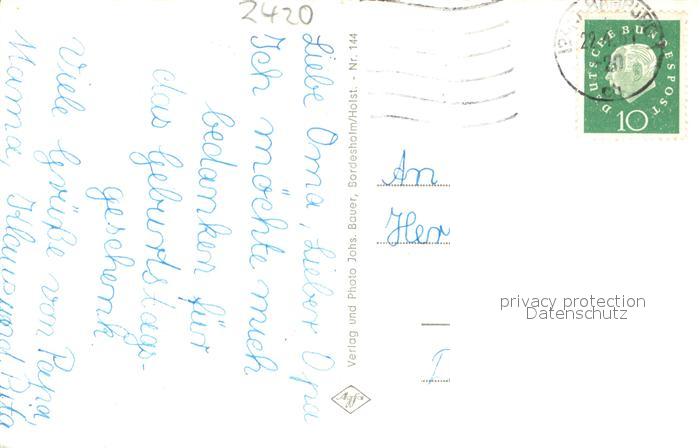 2420
Liebe Oma, lieber Opa
Ich möchte mich
bedanken für
das Geburtstags-
geschenk.
Viele Grüße von Papa,
Mama, Klaus und Rita
Verlag und Photo Johs. Bauer, Bordesholm/Holst. - Nr. 144
Agfa
DEUTSCHE BUNDESPOST
10
20
An
Her
privacy protection
Datenschutz